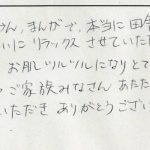 さん、まんがで、本当に田舎
いに リラックス させていた
お肌ツルツルになりとて
ご家族みなさん あたた
いただき ありがとうござい